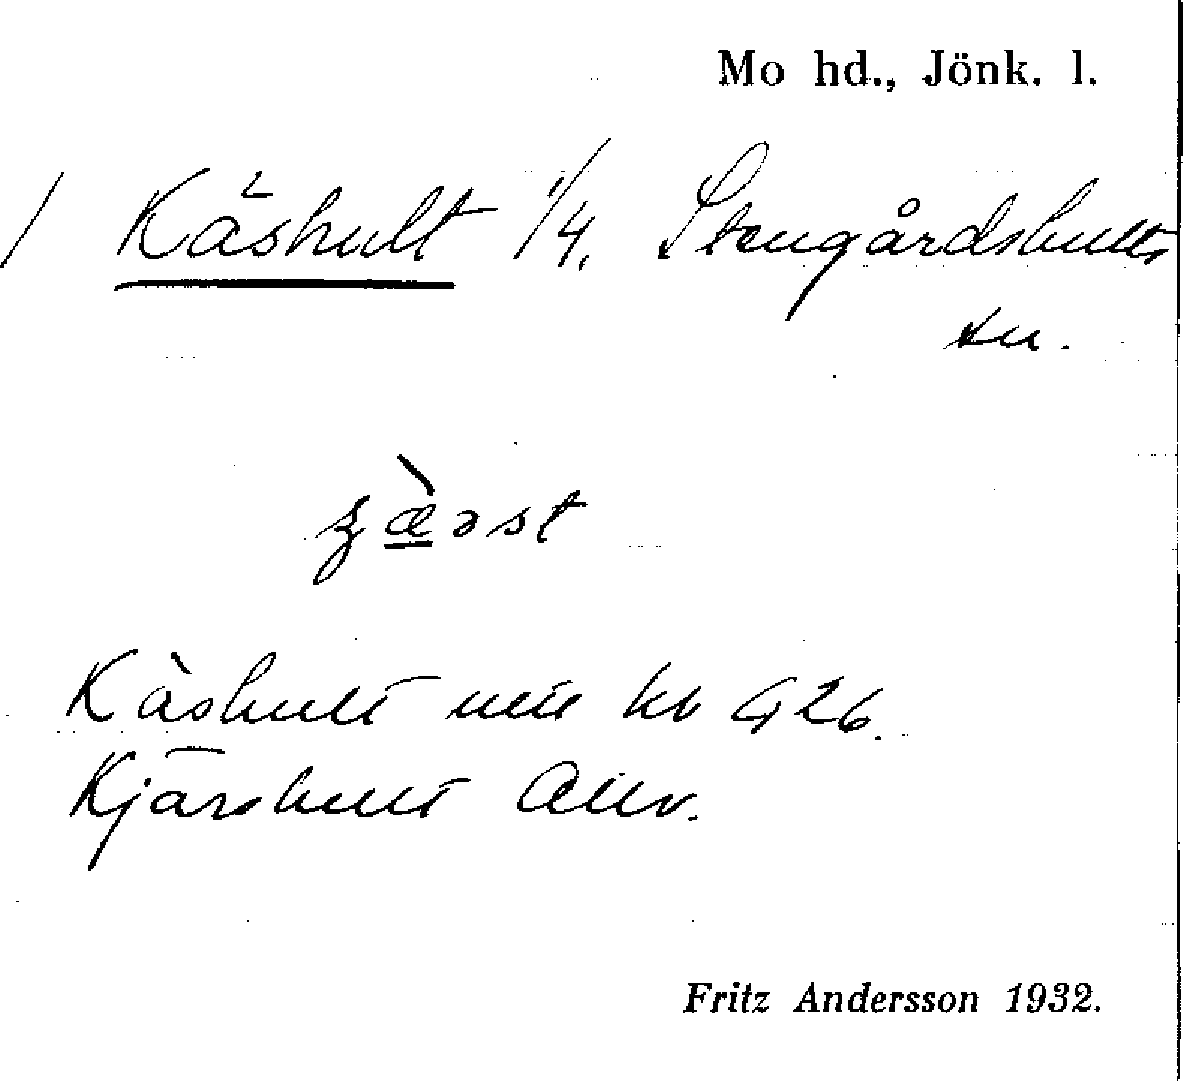 Mo hd., Jönk. l.
/ Käshult 1/4, Stengårdshults
sn.
Käshult 426.
Kjärshult Allv.
Fritz Andersson 1932.